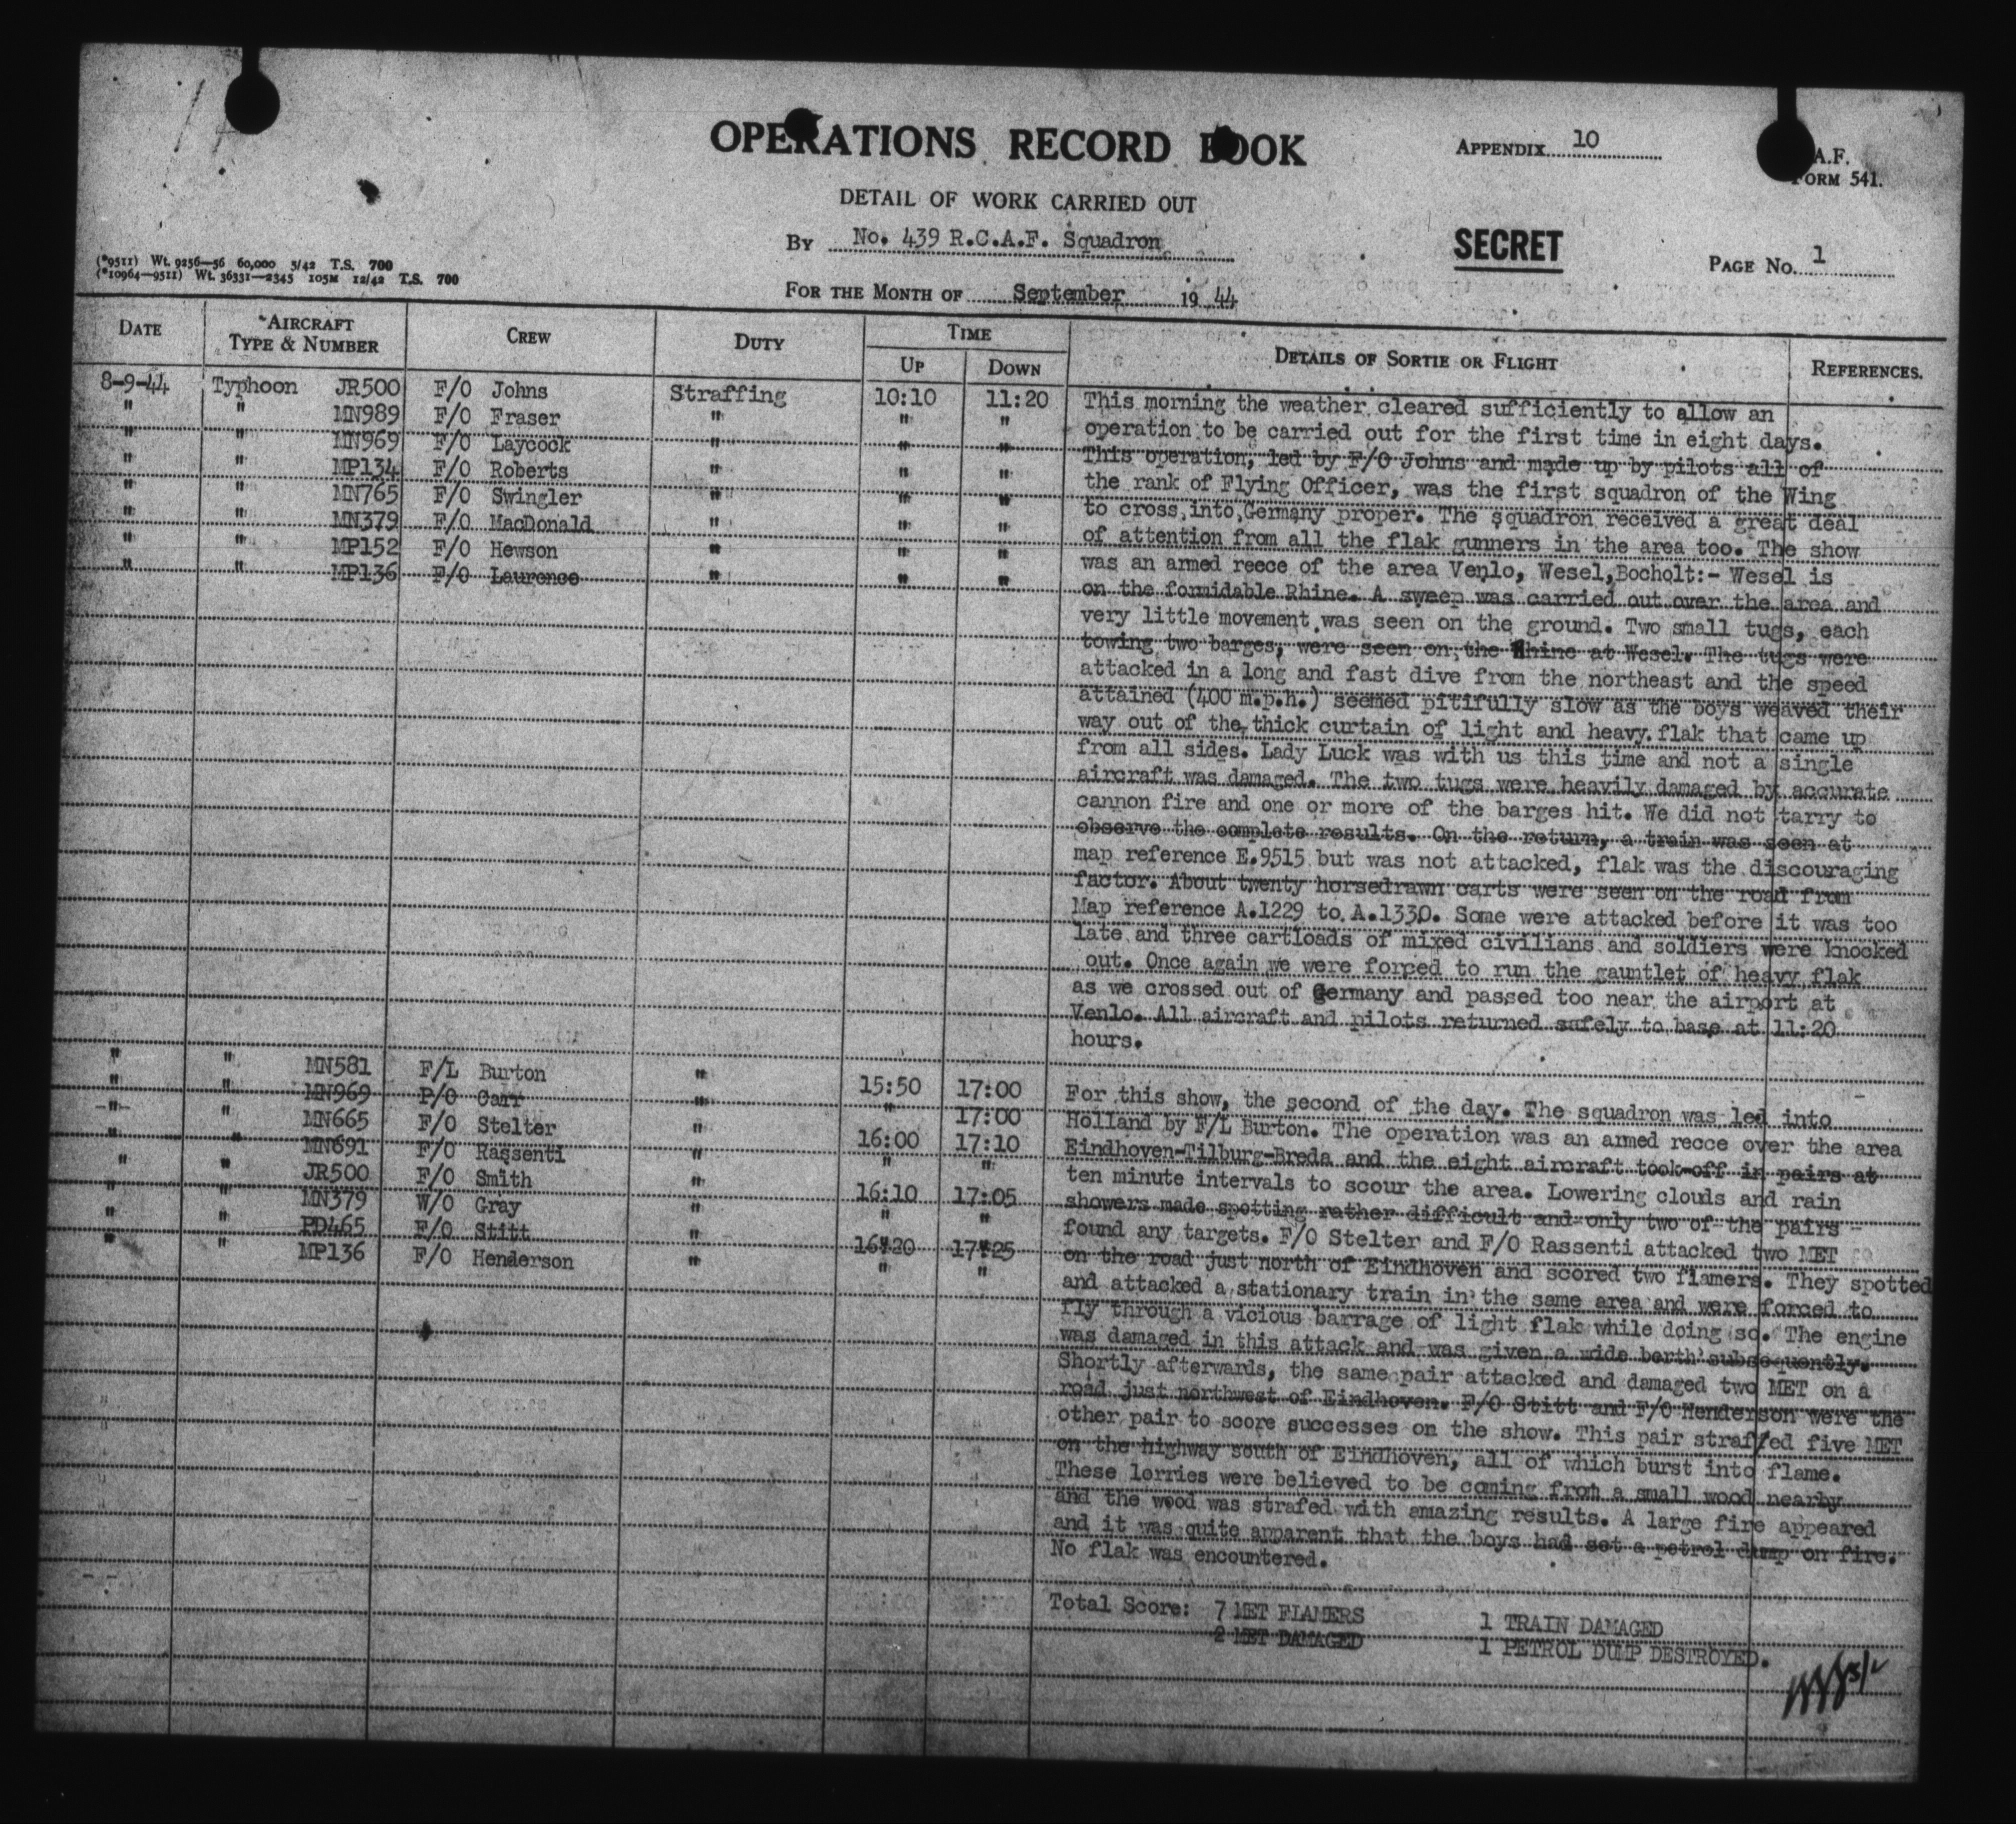 OPERATIONS RECORD BOOK
APPENDIX 10
A.F.
FORM 541.
DETAIL OF WORK CARRIED OUT
BY No. 439 R.C.A.F. Squadron
SECRET
PAGE No. 1
(*9511) Wt. 9256—56 60,000 5/42 T.S. 700
(*10964—9511) Wt. 36331—2345 105M 12/42 T.S. 700
FOR THE MONTH OF September 19 44
DATE AIRCRAFT TYPE & NUMBER CREW DUTY TIME UP DOWN DETAILS OF SORTIE OR FLIGHT REFERENCES.
8-9-44 Typhoon JR500 F/O Johns Straffing 10:10 11:20
" " MN989 F/O Fraser " " "
" " MN969 F/O Laycock " " "
" " MP134 F/O Roberts " " "
" " MN765 F/O Swingler " " "
" " MN379 F/O MacDonald " " "
" " MP152 F/O Hewson " " "
" " MP136 F/O Laurence " " "
This morning the weather cleared sufficiently to allow an
operation to be carried out for the first time in eight days.
This operation, led by F/O Johns and made up by pilots all of
the rank of Flying Officer, was the first squadron of the Wing
to cross into Germany proper. The squadron received a great deal
of attention from all the flak gunners in the area too. The show
was an armed recce of the area Venlo, Wesel,Bocholt:- Wesel is
on the formidable Rhine. A sweep was carried out over the area and
very little movement was seen on the ground. Two small tugs, each
towing two barges, were seen on the Rhine at Wesel. The tugs were
attacked in a long and fast dive from the northeast and the speed
attained (400 m.p.h.) seemed pitifully slow as the boys weaved their
way out of the thick curtain of light and heavy flak that came up
from all sides. Lady Luck was with us this time and not a single
aircraft was damaged. The two tugs were heavily damaged by accurate
cannon fire and one or more of the barges hit. We did not tarry to
observe the complete results. On the return, a train was seen at
map reference E.9515 but was not attacked, flak was the discouraging
factor. About twenty horsedrawn carts were seen on the road from
Map reference A.1229 to A.1330. Some were attacked before it was too
late and three cartloads of mixed civilians and soldiers were knocked
out. Once again we were forced to run the gauntlet of heavy flak
as we crossed out of Germany and passed too near the airport at
Venlo. All aircraft and pilots returned safely to base at 11:20
hours.
" " MN581 F/L Burton " 15:50 17:00
" " MN969 P/O Carr " " 17:00
-"- " MN665 F/O Stelter " 16:00 17:10
" " MN691 F/O Rassenti " " "
" " JR500 F/O Smith " 16:10 17:05
" " MN379 W/O Gray " " "
" " PD465 F/O Stitt " 16:20 17:25
" " MP136 F/O Henderson " " "
For this show, the second of the day. The squadron was led into
Holland by F/L Burton. The operation was an armed recce over the area
Eindhoven-Tilburg-Breda and the eight aircraft took-off in pairs at
ten minute intervals to scour the area. Lowering clouds and rain
showers made spotting rather difficult and only two of the pairs
found any targets. F/O Stelter and F/O Rassenti attacked two MET
on the road just north of Eindhoven and scored two flamers. They spotted
and attacked a stationary train in the same area and were forced to
fly through a vicious barrage of light flak while doing so. The engine
was damaged in this attack and was given a wide berth subsequently.
Shortly afterwards, the same pair attacked and damaged two MET on a
road just northwest of Eindhoven. F/O Stitt and F/O Henderson were the
other pair to score successes on the show. This pair straffed five MET
on the highway south of Eindhoven, all of which burst into flame.
These lorries were believed to be coming from a small wood nearby
and the wood was strafed with amazing results. A large fire appeared
and it was quite apparent that the boys had set a petrol dump on fire.
No flak was encountered.
Total Score: 7 MET FLAMERS 1 TRAIN DAMAGED
2 MET DAMAGED 1 PETROL DUMP DESTROYED.